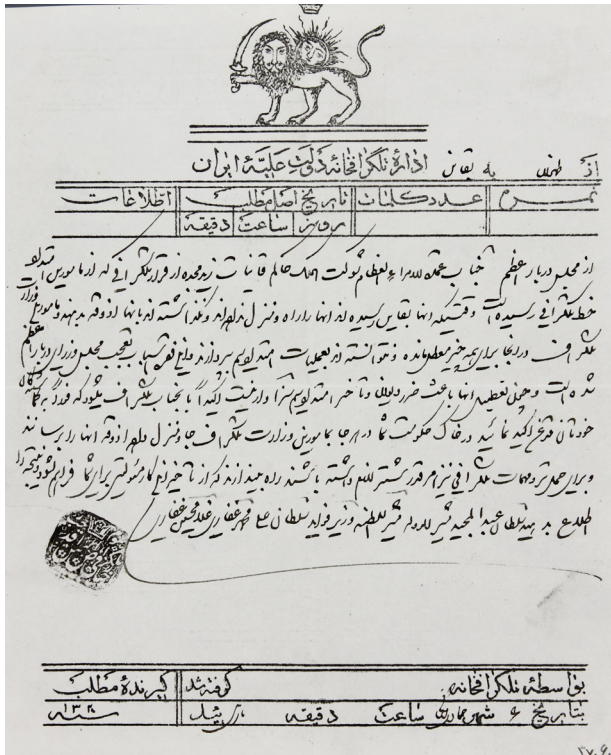 ادارهٔ تلگرافخانهٔ دولت علیّهٔ ایران
از طهران به بقاین
نمره عدد کلمات تاریخ اصل مطلب اطلاعات
روز ساعت دقیقه
از مجلس دربار اعظم جناب عمدة الامراء العظام شوکت الملک حاکم قاینات زید مجده از قرار تلگرافی که از مامورین امتداد
خط تلگرافی رسیده است وقتیکه آنها بقاین رسیده اند آنها را راه و منزل نداده اند و نگذاشته اند بآنها آذوقه بدهند و مامورین وزارت
تلگراف در آنجا برای همه چیز معطل مانده و نتوانسته اند بعملیات امتداد سیم بپردازند این شما بتعجب مجلس وزرای دربار اعظم
شده است و چون تعطیل آنها باعث ضرر دولت و تأخیر امتداد سیم است اکیداً بآنجناب تلگراف میشود که
خودتان قدغن اکید نمائید در خاک حکومت شما در هر جا بمامورین وزارت تلگراف جا و منزل داده آذوقه آنها را برسانند
و برای حمل و نقل مهمات تلگرافی نیز هر قدر شتر لازم داشته باشند راه بیندازند که از تأخیر این کار مسئولیتی برای شما فراهم نشود و نتیجه را
اطلاع بدهید سلطان عبدالمجید مشیرالدوله مشیرالسلطنه وزیر فواید سلطان علی غفاری غلامحسین غفاری
بواسطهٔ تلگرافخانه گرفته شد گیرندهٔ مطلب
بتاریخ ۶ شهر ساعت دقیقه ئیل سنه ۱۳۲۰
۲۷۰۶